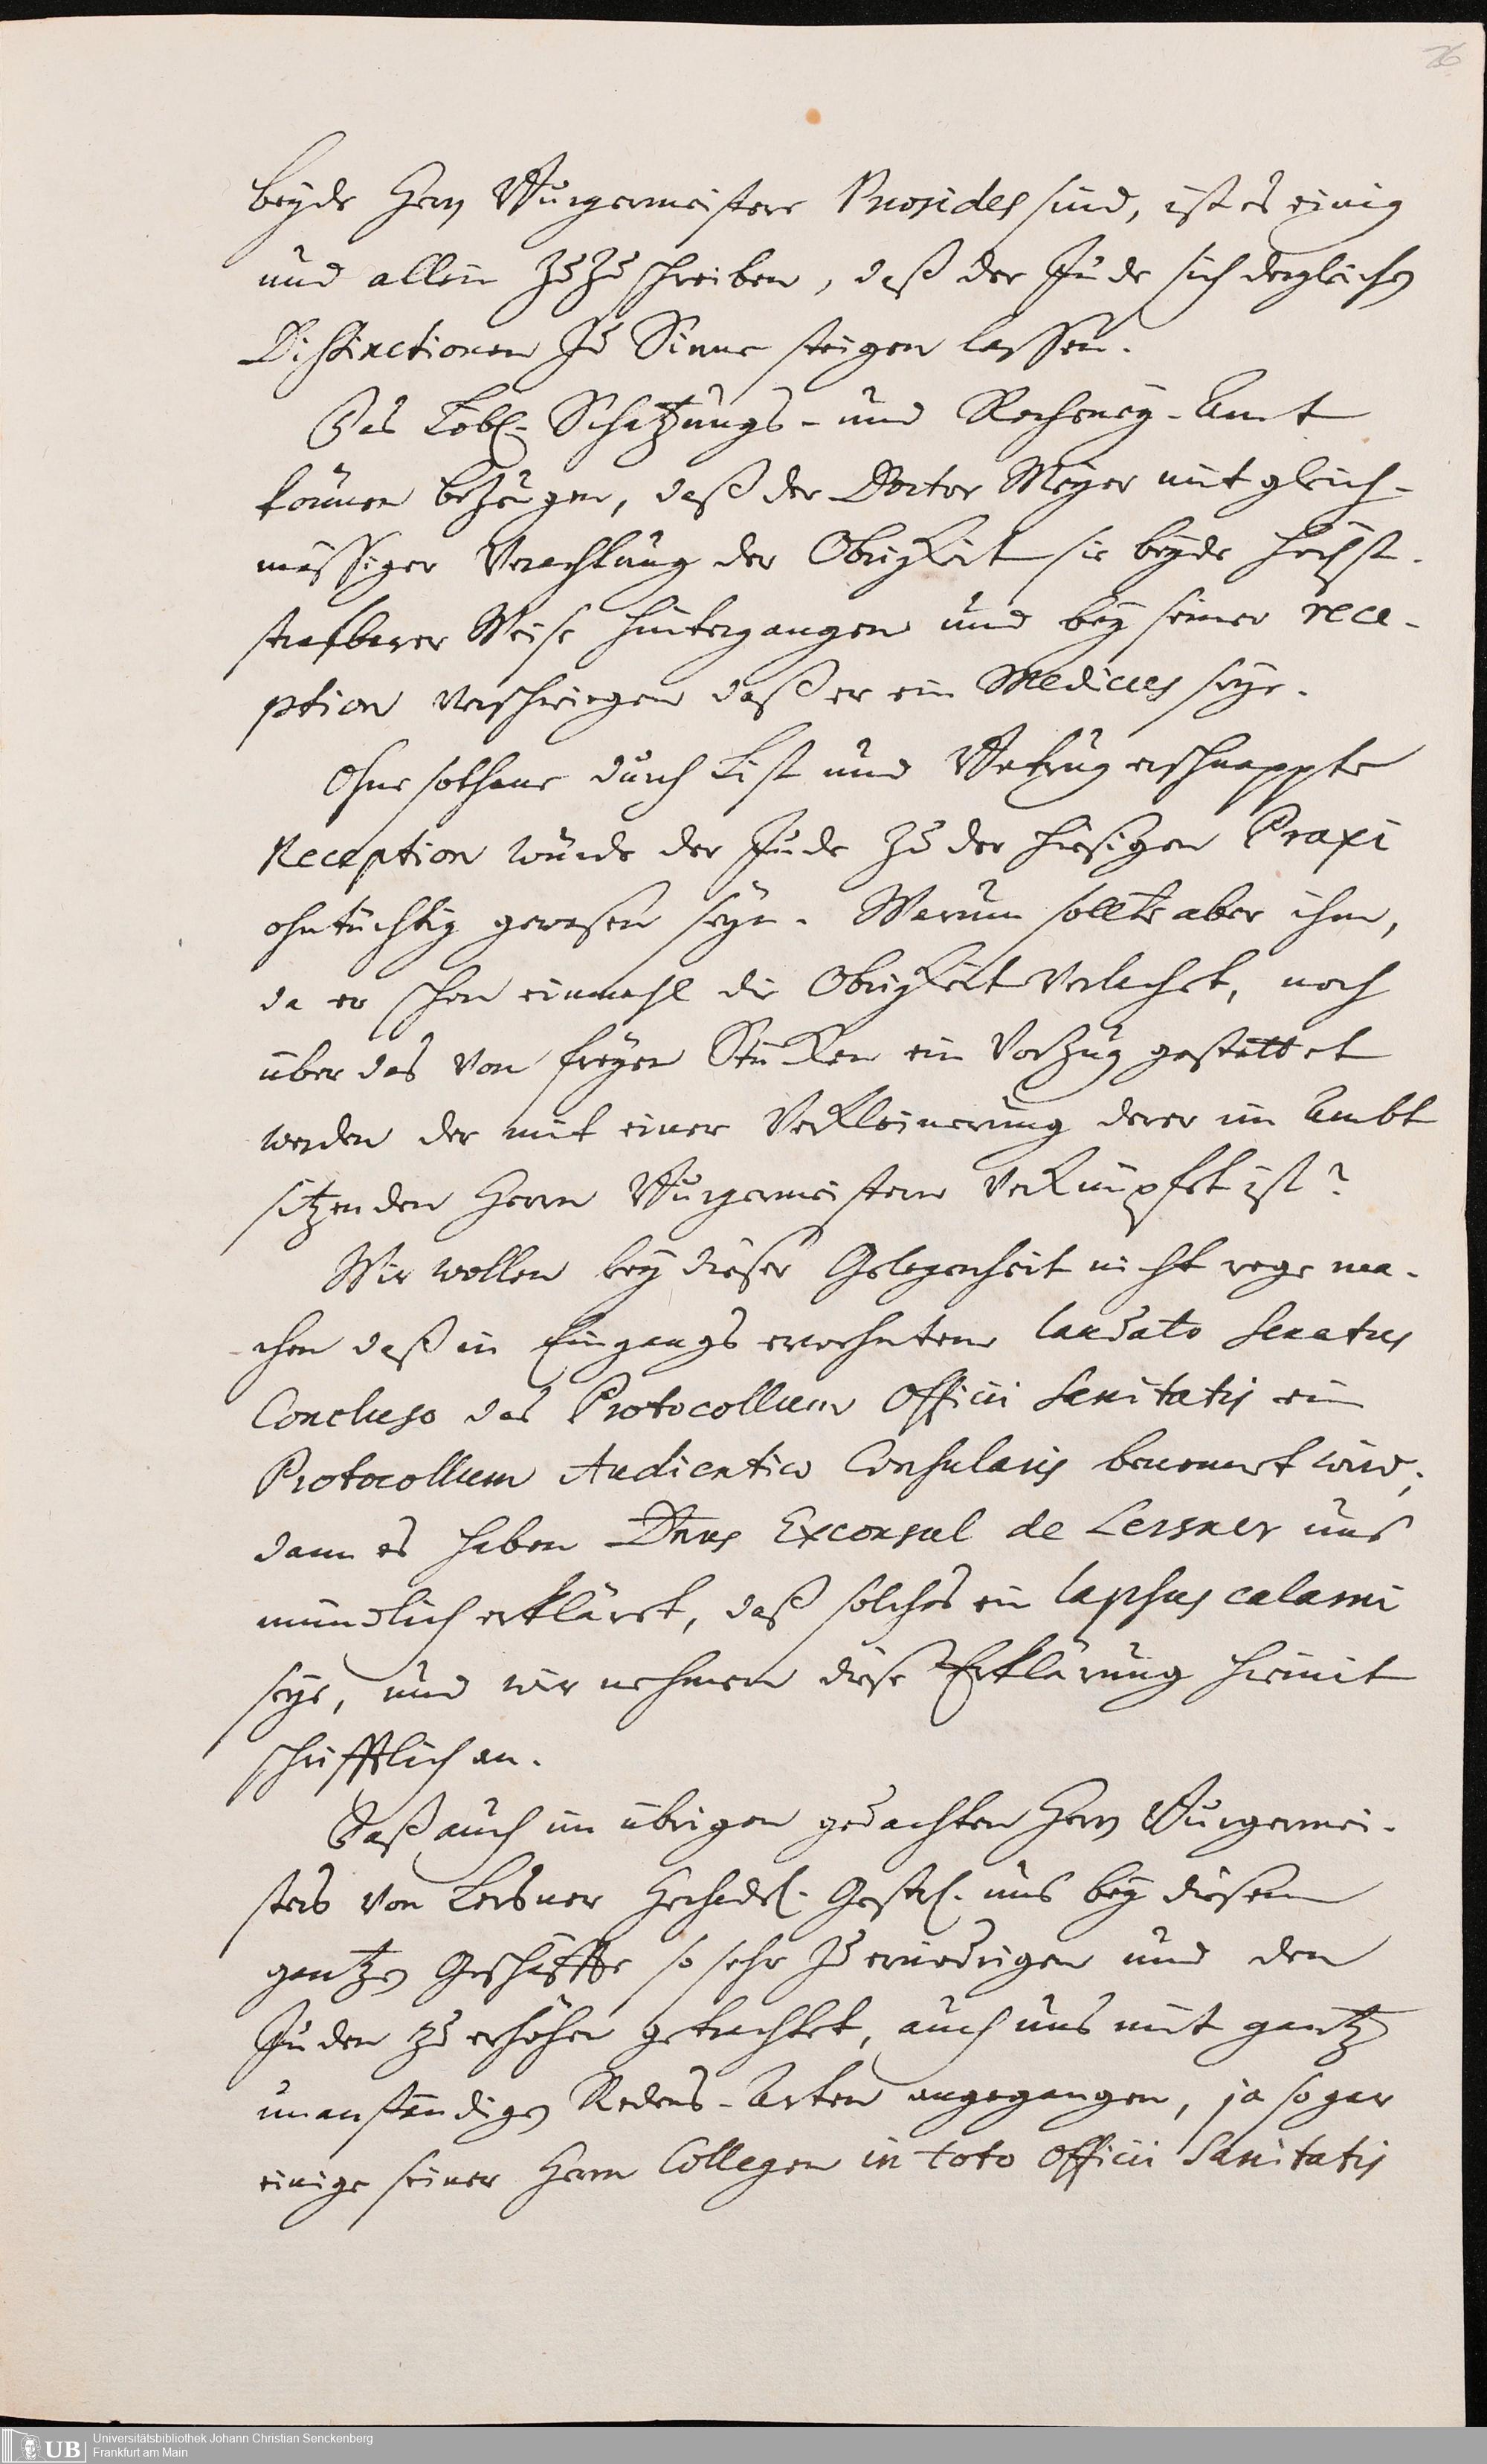 76
beyde Herrn Burgermeistere Praesides sind, ist es einig
und allein zuzuschreiben, daß der Jude sich dergleichen
Distinctionen zu Sinne steigen lassen.
Das Löbl. Schatzungs- und Recheney-Amt
können bezeugen, daß der Doctor Meyer mit gleich-
mässiger Verachtung der Obrigkeit sie beyde höchst-
strafbarer Weise hintergangen und bey seiner rece-
ption verschwiegen daß er ein Medicus seye.
Ohne solthane durch List und Betrug erschnappte
Reception würde der Jude zu der hiesigen Praxi
ohntüchtig gewesen seyn. Warum sollte aber ihm,
da er schon einmahl die Obrigkeit verlacht, noch
über das von freyen Stücken ein Vorzug gestattet
werden der mit einer Verkleinerung derer im Ambt
sitzenden Herrn Burgermeistere verknüpfet ist?
Wir wollen bey dieser Gelegenheit nicht rege ma-
chen daß in Eingangs erwehntem laudato Senatus
Concluso das Protocollum Officii Sanitatis ein
Protocollum Audientiae Consularis benennet wird;
dann es haben Dnus Exconsul de Lersner uns
mündlich erklärt, daß solches ein lapsus calami
seye, und wir nehmen diese Erklärung hiemit
schrifftlich an.
Daß auch im übrigen gedachten Herrn Burgermei-
sters von Lersner Hochadel. Gestr. uns bey diesem
gantzen Geschäffte so sehr zu erniedrigen und den
Juden zu erhöhen getrachtet, auch uns mit gantz
unanständigen Redens-Arten angegangen, ja sogar
einige seiner Herrn Collegen in toto Officii Sanitatis
UB
Universitätsbibliothek Johann Christian Senckenberg
Frankfurt am Main